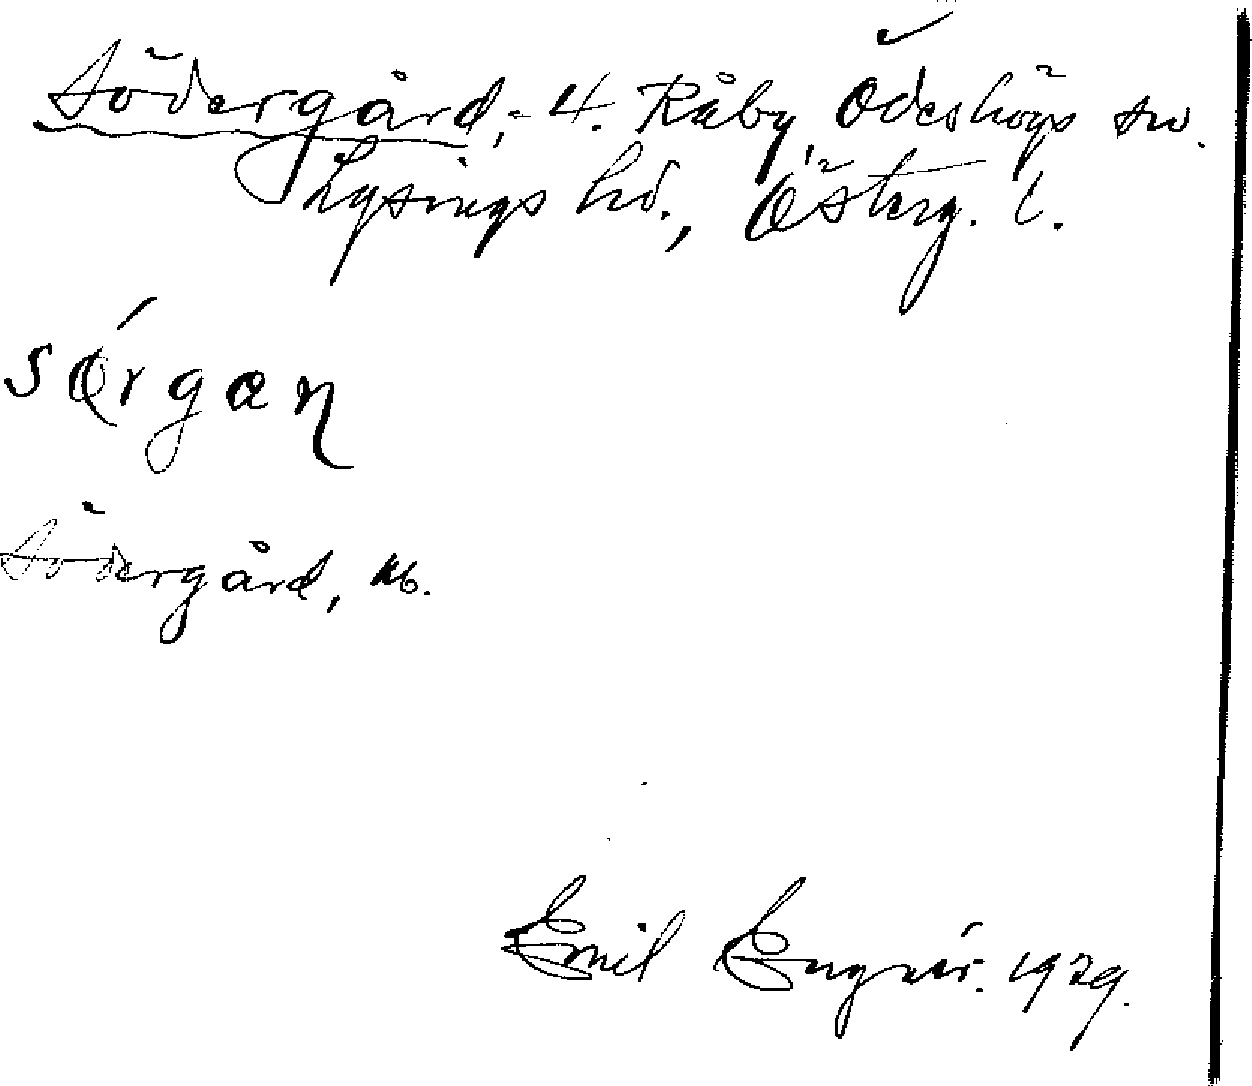 Södergård, 4. Råby, Ödeshögs sn.
Lysings hd., Österg. l.
Södergård, ub.
Emil Engnér. 1929.